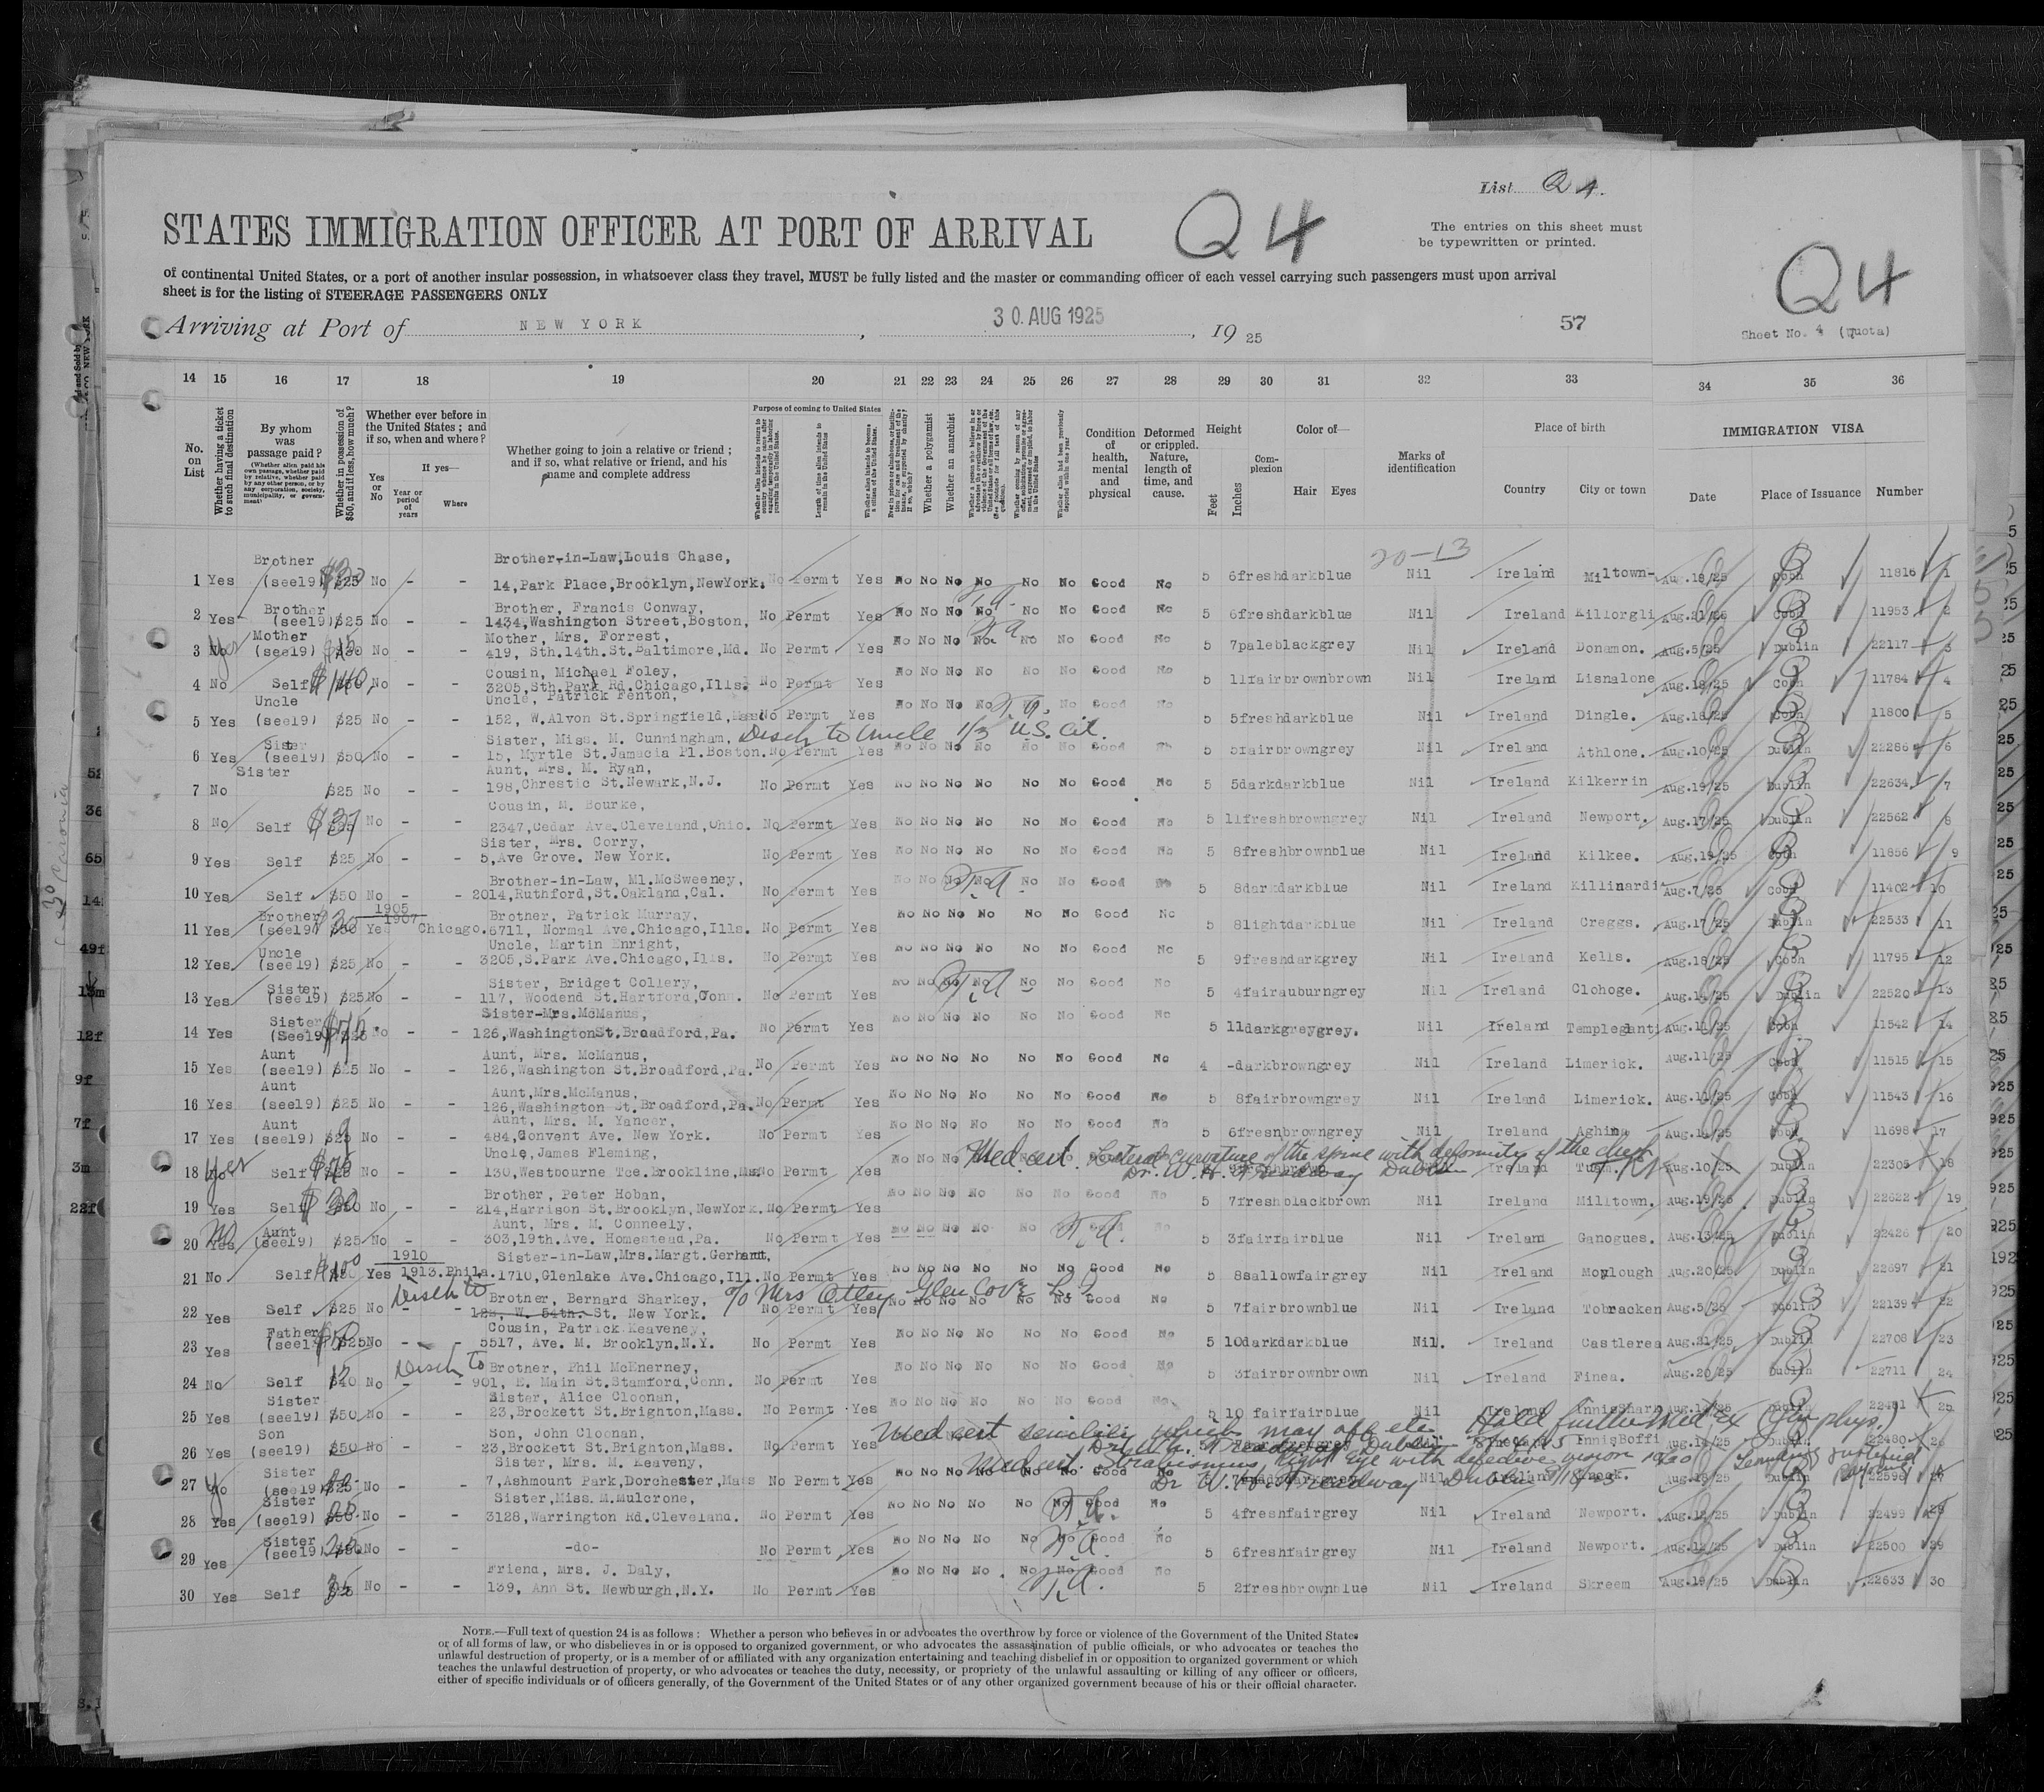 List Q 4.
STATES IMMIGRATION OFFICER AT PORT OF ARRIVAL
Q4
The entries on this sheet must
be typewritten or printed.
of continental United States, or a port of another insular possession, in whatsoever class they travel, MUST be fully listed and the master or commanding officer of each vessel carrying such passengers must upon arrival
sheet is for the listing of STEERAGE PASSENGERS ONLY
Q4
Arriving at Port of NEW YORK, 30 AUG 1925, 19 25
57
Sheet No. 4 (quota)
14 15 16 17 18 19 20 21 22 23 24 25 26 27 28 29 30 31 32 33 34 35 36
No. on List
Whether having a ticket to such final destination
By whom was passage paid?
(Whether alien paid his own passage, whether paid by relative, whether paid by any other person, or by any corporation, society, municipality, or government)
Whether in possession of $50, and if less, how much?
Whether ever before in the United States; and if so, when and where?
Yes or No
If yes—
Year or period of years
Where
Whether going to join a relative or friend; and if so, what relative or friend, and his name and complete address
Purpose of coming to United States
Length of time alien intends to remain in the United States
Whether alien intends to become a citizen of the United States.
Whether a polygamist
Whether an anarchist
Condition of health, mental and physical
Deformed or crippled. Nature, length of time, and cause.
Height
Feet
Inches
Complexion
Color of—
Hair Eyes
Marks of identification
Place of birth
Country
City or town
IMMIGRATION VISA
Date
Place of Issuance
Number
20-13
1 Yes Brother (see19) $25 No - - Brother-in-Law, Louis Chase,
14, Park Place, Brooklyn, NewYork. No Permt Yes No No No No No No Good No 5 6 fresh dark blue Nil Ireland Miltown- Aug.18/25 Cobh 11816 1
2 Yes Brother (see19) $25 No - - Brother, Francis Conway,
1434, Washington Street, Boston, No Permt Yes No No No No No No Good No 5 6 fresh dark blue Nil Ireland Killorgli Aug.21/25 Cobh 11953 2
3 No Yes Mother (see19) No - - Mother, Mrs. Forrest,
419, Sth.14th.St.Baltimore, Md. No Permt Yes No No No No No No Good No 5 7 pale black grey Nil Ireland Donamon. Aug.5/25 Dublin 22117 3
4 No Self $140, No - - Cousin, Michael Foley,
3205, Sth.Park Rd.Chicago, Ills. No Permt Yes No No No No No No Good No 5 11 fair brown brown Nil Ireland Lisnalone Aug.18/25 Cobh 11784 4
5 Yes Uncle (see19) $25 No - - Uncle, Patrick Fenton,
152, W.Alvon St.Springfield, Mass No Permt Yes No No No No No No Good No 5 5 fresh dark blue Nil Ireland Dingle. Aug.18/25 Cobh 11800 5
Disch to Uncle 1/3 U.S. Cit.
6 Yes Sister (see19) $50 No - - Sister, Miss. M. Cunningham,
15, Myrtle St.Jamacia Pl.Boston. No Permt Yes No No No No No No Good No 5 5 fair brown grey Nil Ireland Athlone. Aug.10/25 Dublin 22286 6
7 No Sister $25 No - - Aunt, Mrs. M. Ryan,
198, Chrestic St.Newark, N.J. No Permt Yes No No No No No No Good No 5 5 dark dark blue Nil Ireland Kilkerrin Aug.19/25 Dublin 22634 7
8 No Self $37 No - - Cousin, M. Bourke,
2347, Cedar Ave.Cleveland, Ohio. No Permt Yes No No No No No No Good No 5 11 fresh brown grey Nil Ireland Newport. Aug.17/25 Dublin 22562 8
9 Yes Self $25 No - - Sister, Mrs. Corry,
5, Ave Grove. New York. No Permt Yes No No No No No No Good No 5 8 fresh brown blue Nil Ireland Kilkee. Aug.19/25 Cobh 11856 9
10 Yes Self $50 No - - Brother-in-Law, Ml.McSweeney,
2014, Ruthford, St.Oakland, Cal. No Permt Yes No No No No No No Good No 5 8 dark dark blue Nil Ireland Killinardi Aug.7/25 Cobh 11402 10
11 Yes Brother (see19) 30 Yes 1905 1907 Chicago. Brother, Patrick Murray,
5711, Normal Ave.Chicago, Ills. No Permt Yes No No No No No No Good No 5 8 light dark blue Nil Ireland Creggs. Aug.17/25 Dublin 22533 11
12 Yes Uncle (see19) $25 No - - Uncle, Martin Enright,
3205, S.Park Ave.Chicago, Ills. No Permt Yes No No No No No No Good No 5 9 fresh dark grey Nil Ireland Kells. Aug.18/25 Cobh 11795 12
13 Yes Sister (see19) $25 No - - Sister, Bridget Collery,
117, Woodend St.Hartford, Conn. No Permt Yes No No No No No No Good No 5 4 fair auburn grey Nil Ireland Clohoge. Aug.14/25 Dublin 22520 13
14 Yes Sister (See19) $25 No - - Sister-Mrs.McManus,
126, WashingtonSt.Broadford, Pa. No Permt Yes No No No No No No Good No 5 11 dark grey grey. Nil Ireland Templeglanti Aug.11/25 Cobh 11542 14
15 Yes Aunt (see19) $25 No - - Aunt, Mrs. McManus,
126, Washington St.Broadford, Pa. No Permt Yes No No No No No No Good No 4 - dark brown grey Nil Ireland Limerick. Aug.11/25 Cobh 11515 15
16 Yes Aunt (see19) $25 No - - Aunt, Mrs.McManus,
126, Washington St.Broadford, Pa. No Permt Yes No No No No No No Good No 5 8 fair brown grey Nil Ireland Limerick. Aug.11/25 Cobh 11543 16
17 Yes Aunt (see19) $25 No - - Aunt, Mrs. M. Yancer,
484, Convent Ave. New York. No Permt Yes No No No No No No Good No 5 6 fresh brown grey Nil Ireland Aghina Cobh 11698 17
Med. cert. Lateral curvature of the spine with deformity of the chest
18 Yes Self No - - Uncle, James Fleming,
130, Westbourne Tce.Brookline, Mass No Permt Yes No No No Dr. W. H. Treadway Dublin Ireland Tuam. Aug.10/25 Dublin 22305 18
19 Yes Self $30 No - - Brother, Peter Hoban,
214, Harrison St.Brooklyn, NewYork. No Permt Yes No No No No No No Good No 5 7 fresh black brown Nil Ireland Milltown. Aug.19/25 Dublin 22622 19
20 No Yes Aunt (see19) $25 No - - Aunt, Mrs. M. Conneely,
303, 19th.Ave. Homestead, Pa. No Permt Yes No No No No No No Good No 5 3 fair fair blue Nil Ireland Ganogues. Aug.13/25 Dublin 22426 20
21 No Self $100 Yes 1910 1913. Phila. Sister-in-Law, Mrs.Margt.Gerhant,
1710, Glenlake Ave.Chicago, Ill. No Permt Yes No No No No No No Good No 5 8 sallow fair grey Nil Ireland Moylough Aug.20/25 Dublin 22697 21
Disch to
c/o Mrs Ottley Glen Cove L.I.
22 Yes Self $25 No - - Brother, Bernard Sharkey,
W. 54th. St. New York. No Permt Yes No No No No No No Good No 5 7 fair brown blue Nil Ireland Tobracken Aug.5/25 Dublin 22139 22
23 Yes Father (see19) $25 No - - Cousin, Patrick Keaveney,
5517, Ave. M. Brooklyn.N.Y. No Permt Yes No No No No No No Good No 5 10 dark dark blue Nil. Ireland Castlerea Aug.21/25 Dublin 22708 23
Disch to
24 No Self $40 No - - Brother, Phil McEnerney,
901, E. Main St.Stamford, Conn. No Permt Yes No No No No No No Good No 5 3 fair brown brown Nil Ireland Finea. Aug.20/25 Dublin 22711 24
25 Yes Sister (see19) $50 No - - Sister, Alice Cloonan,
23, Brockett St.Brighton, Mass. No Permt Yes No No No No No No Good No 5 10 fair fair blue Nil Ireland 22481 25
Med cert senility which may aff etc. Hold further Med Ex
26 Yes Son (see19) $50 No - - Son, John Cloonan,
23, Brockett St.Brighton, Mass. No Permt Yes Dr W.H. Treadway Dublin Dublin 22480 26
Med cert. Strabismus, Right eye with defective vision
27 No Sister (see19) $25 No - - Sister, Mrs. M. Keaveny,
7, Ashmount Park, Dorchester, Mass No Permt Yes No No No No No No Good No Dr W. H. Treadway Dublin Nil Ireland Knock. Dublin 22596 27
28 Yes Sister (see19) No - - Sister, Miss. M.Mulcrone,
3128, Warrington Rd.Cleveland. No Permt Yes No No No No No No Good No 5 4 fresh fair grey Nil Ireland Newport. Aug.12/25 Dublin 22499 28
29 Yes Sister (see19) No - - -do-
No Permt Yes No No No No No No Good No 5 6 fresh fair grey Nil Ireland Newport. Aug.12/25 Dublin 22500 29
30 Yes Self $25 No - - Friend, Mrs. J. Daly,
139, Ann St. Newburgh, N.Y. No Permt Yes No No No No No No Good No 5 2 fresh brown blue Nil Ireland Skreem Aug.19/25 Dublin 22633 30
NOTE.—Full text of question 24 is as follows: Whether a person who believes in or advocates the overthrow by force or violence of the Government of the United States
or of all forms of law, or who disbelieves in or is opposed to organized government, or who advocates the assassination of public officials, or who advocates or teaches the
unlawful destruction of property, or is a member of or affiliated with any organization entertaining and teaching disbelief in or opposition to organized government or which
teaches the unlawful destruction of property, or who advocates or teaches the duty, necessity, or propriety of the unlawful assaulting or killing of any officer or officers,
either of specific individuals or of officers generally, of the Government of the United States or of any other organized government because of his or their official character.